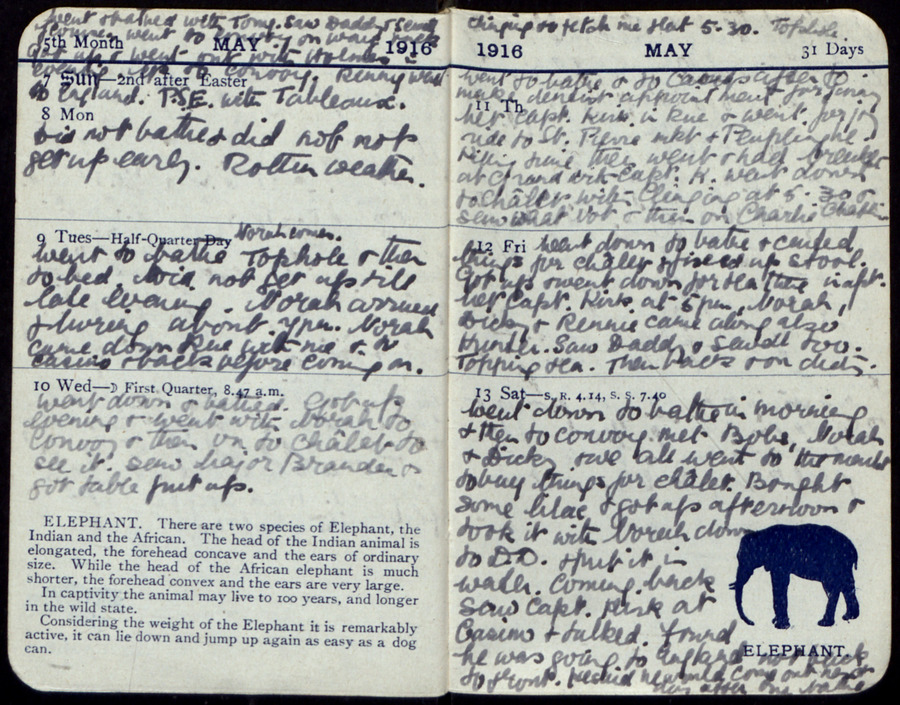 went & bathed with Tony. Saw Daddy &
went to on way back
5th Month MAY 1916
got up & went out with
evening to Convoy. Rennie went
7 Sun—2nd after Easter
to England. P.S.E. with Tableaux.
8 Mon
Did not bathe & did not
get up early. Rotten weather.
9 Tues—Half-Quarter Day Norah comes.
went to bathe Tophole & then
to bed. Did not get up till
late evening. Norah arrived
during about 7pm. Norah
came down Rue with me & to
casino & back before coming on.
10 Wed—☽ First Quarter, 8.47 a.m.
went down & bathed. Got up
evening & went with Norah to
Convoy & then on to châlet to
see it. Saw Major Brander &
got table put up.
ELEPHANT. There are two species of Elephant, the
Indian and the African. The head of the Indian animal is
elongated, the forehead concave and the ears of ordinary
size. While the head of the African elephant is much
shorter, the forehead convex and the ears are very large.
In captivity the animal may live to 100 years, and longer
in the wild state.
Considering the weight of the Elephant it is remarkably
active, it can lie down and jump up again as easy as a dog
can.
to fetch me that 5.30. Tophole
1916 MAY 31 Days
went to bathe & to Casino after to
make dentist appointment & for
11 Th
met Capt. Kirk in Rue & went for joy
ride to St. Pierre mkt &
time then went & had breakfast
at with Capt. K. went down
to châlet with at 5.30 &
saw what not & then on Charlie Chaplin
12 Fri went down to bathe & carted
things for châlet & fixed up stool.
Got up & went down for tea time in aft.
met Capt. Kirk at 5pm, Norah,
Dicky & Rennie came along also
Hunter. Saw Daddy & too.
Topping tea. Then back & on duty.
13 Sat—S. R. 4.14, S. S. 7.40
Went down to bathe in morning
& then to convoy met Bobs, Norah
& Dicky & we all went to the market
to buy things for châlet. Bought
some lilac & got up afternoon &
took it with Norah down
to D.D. & put it in
water. Coming back
saw Capt. Kirk at
Casino & talked. Found
he was going to England not back
to front. He said he would come out next
day after one bathe
ELEPHANT.